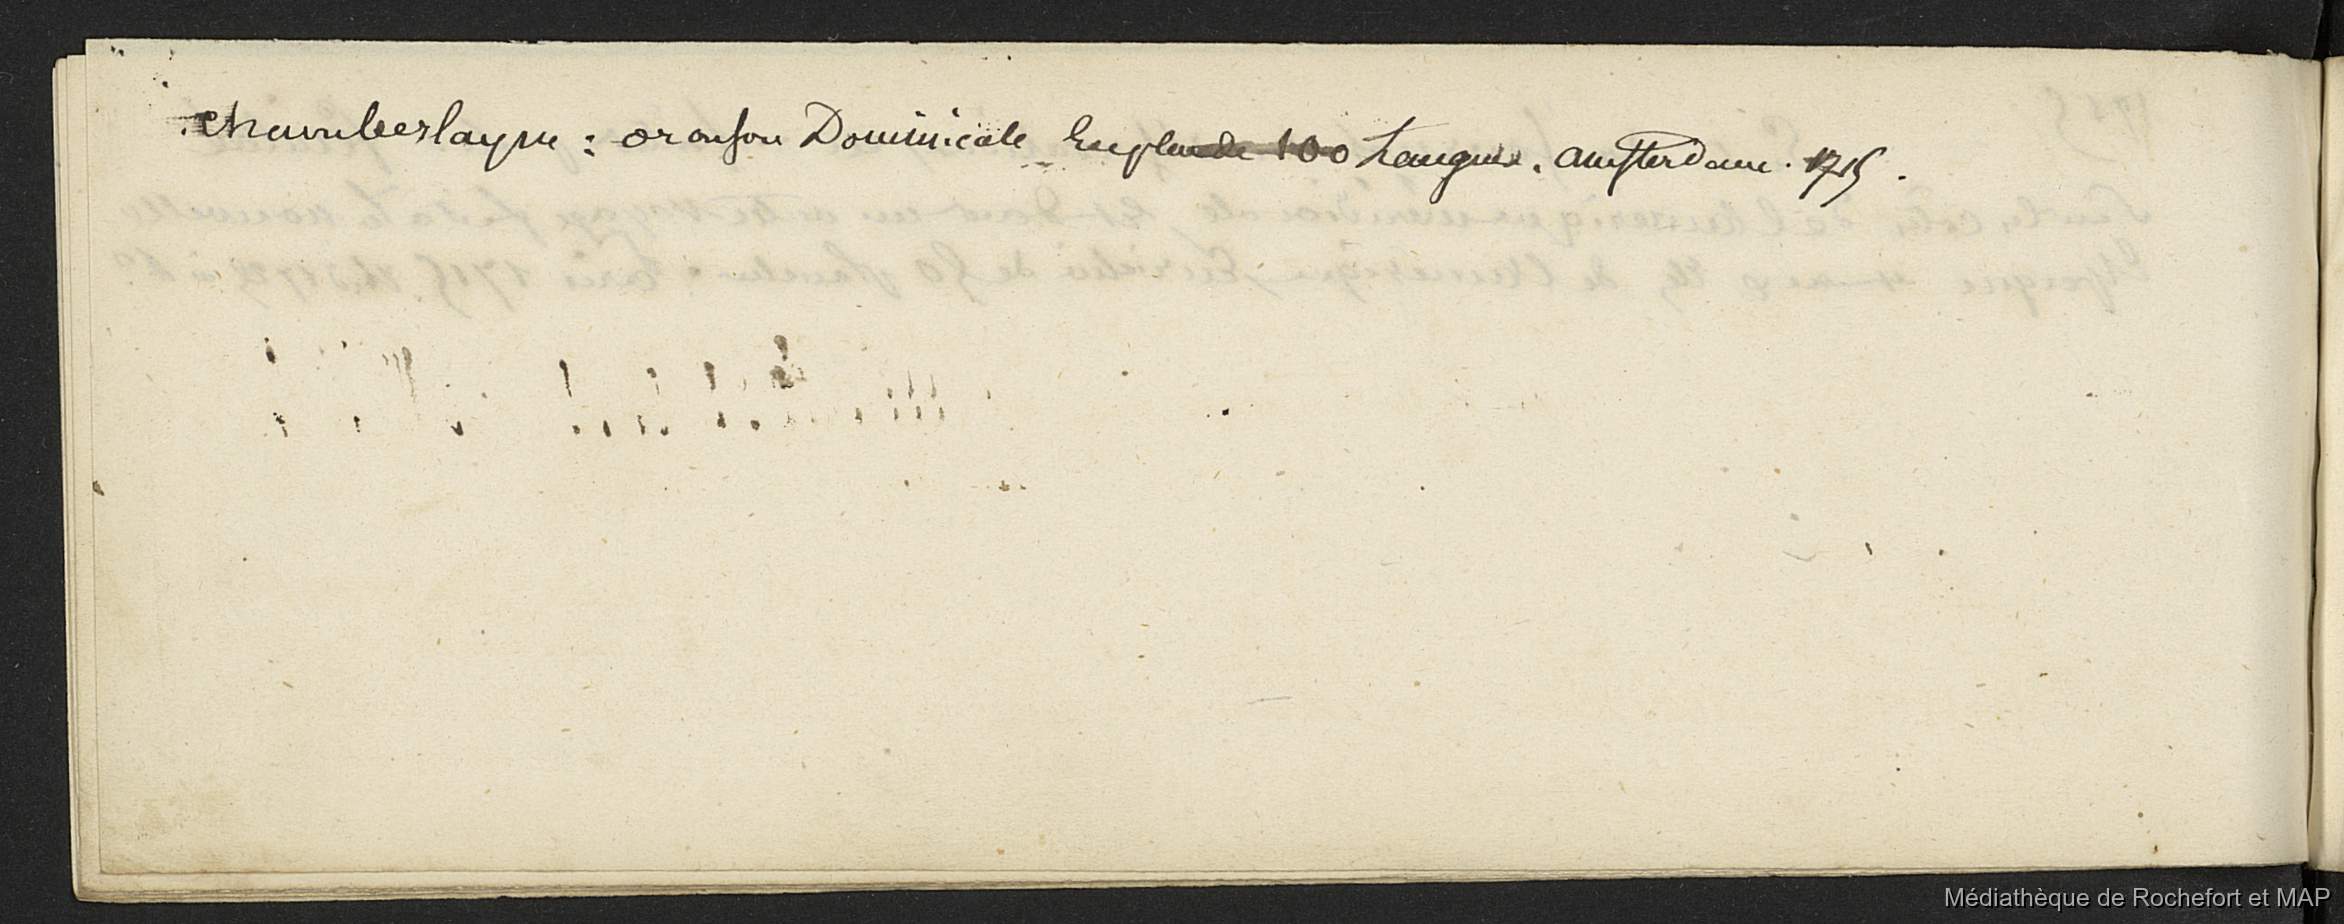 Chamberlayne : oraison Dominicale En plus de 100 Langues. amsterdam. 1715.
Médiathèque de Rochefort et MAP